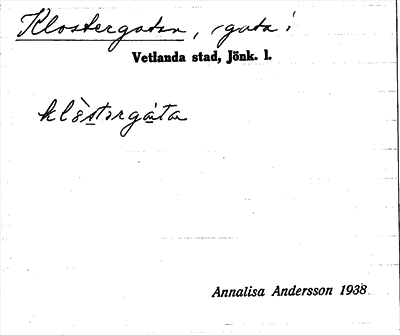 Klostergatan, gata i
Vetlanda stad, Jönk. l.
klòstərgàta
Annalisa Andersson 1938